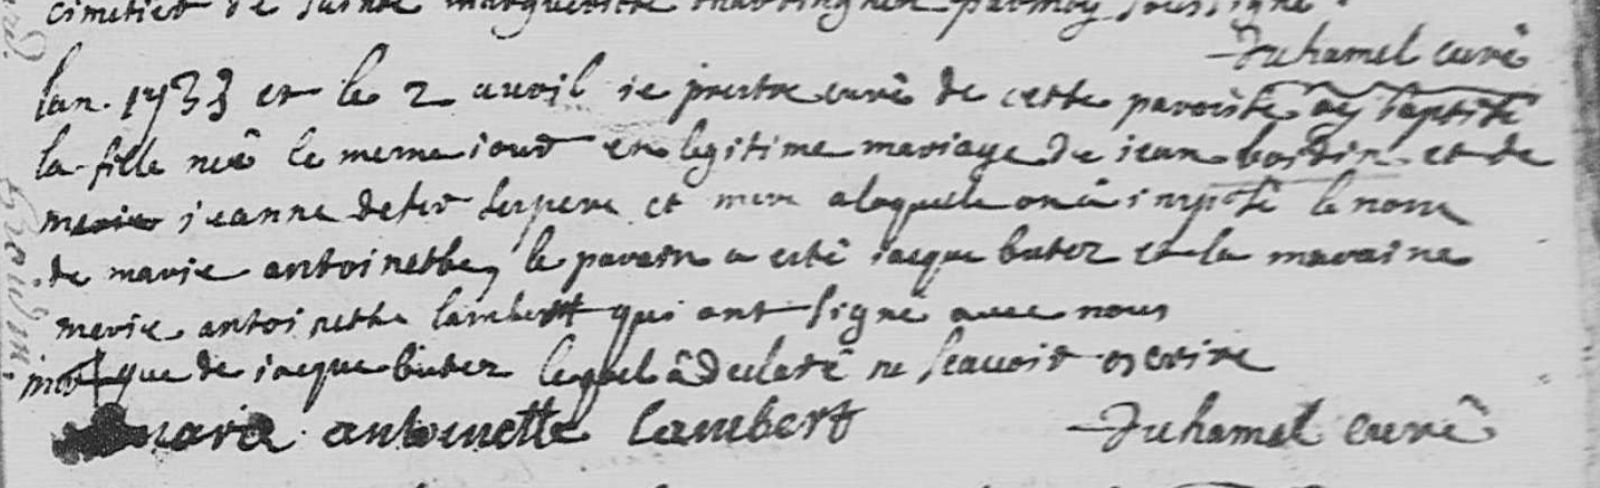 cimetier de sainte marguerite par moy soussigné.
Duhamel curé
lan 1733 et le 2 avril ie prestre curé de cette paroisse ay baptisé
la fille neê le meme iour en legitime mariage de iean et de
marie ieanne ses pere et mere a laquele on â imposé le nom
de marie antoinette, le parain a esté iacque buter et la maraine
marie antoinette lambert qui ont signé avec nous
marque de iacque buter lequel â declaré ne scavoir escrire
marie antoinette lambert Duhamel curê